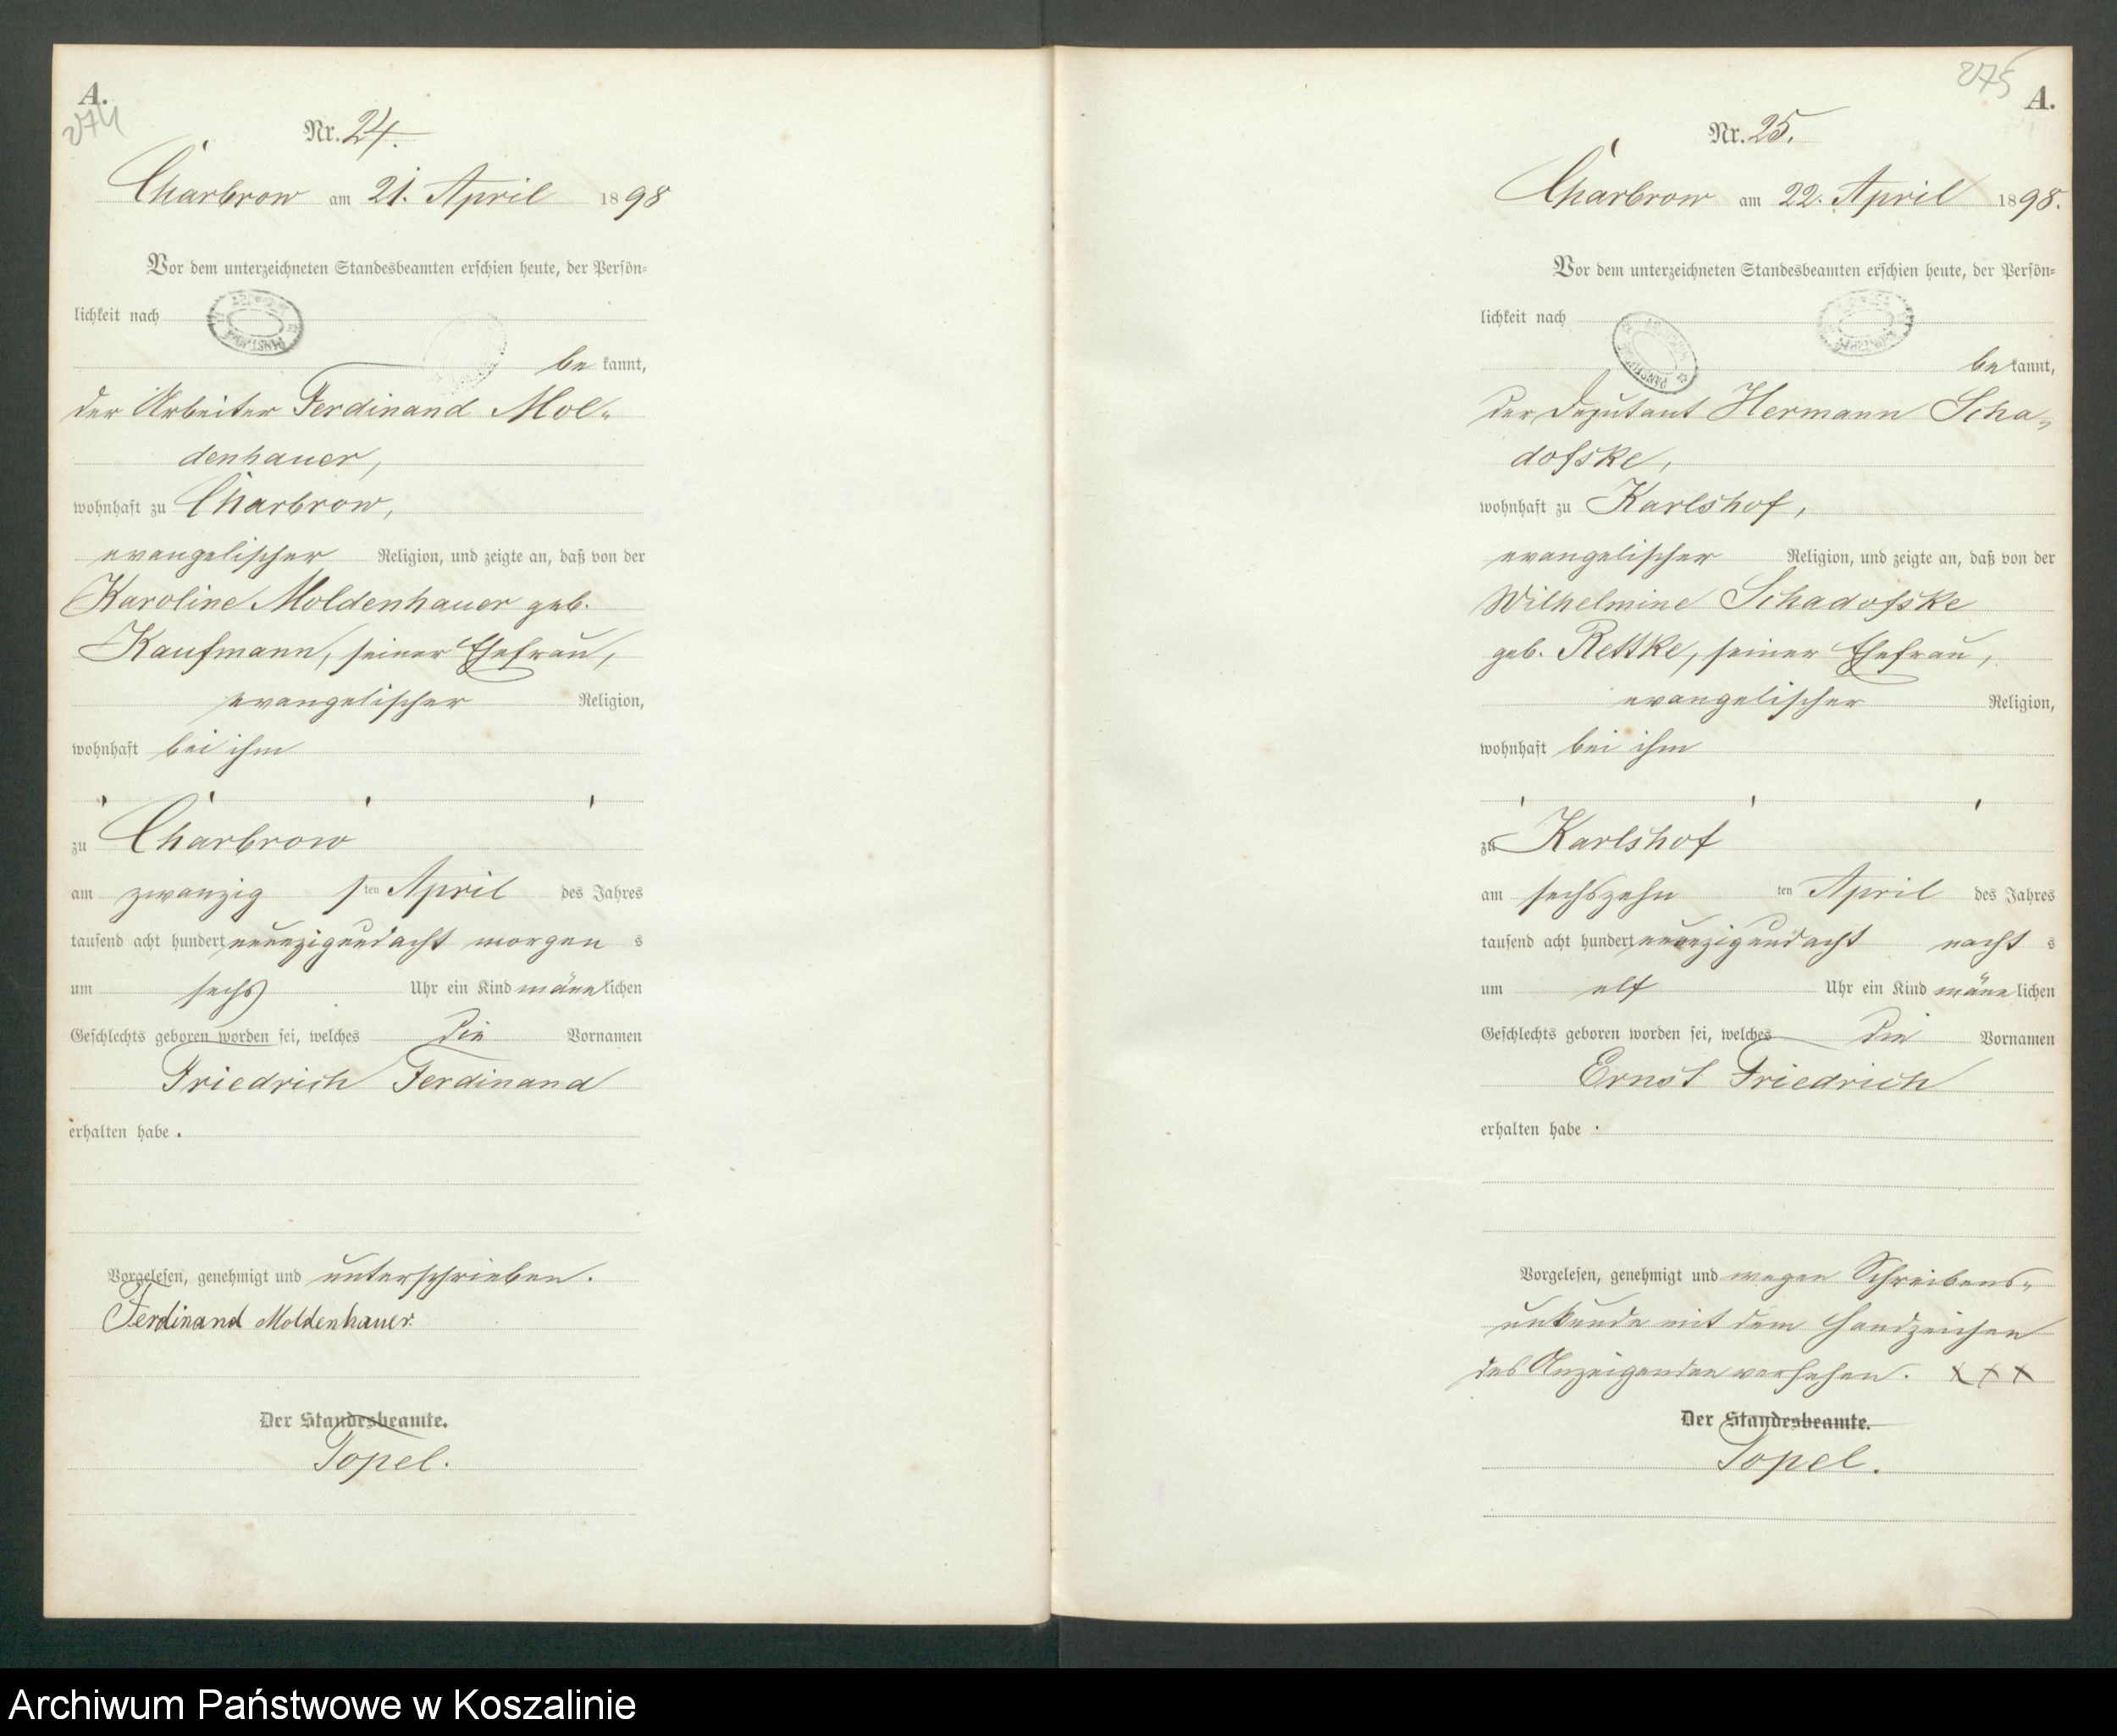 A.
274
Nr. 24.
Charbrow am 21. April 1898
Vor dem unterzeichneten Standesbeamten erschien heute, der Persön-
lichkeit nach
be kannt,
der Arbeiter Ferdinand Mol-
denhauer,
wohnhaft zu Charbrow,
evangelischer Religion, und zeigte an, daß von der
Karoline Moldenhauer geb.
Kaufmann, seiner Ehefrau,
evangelischer Religion,
wohnhaft bei ihm
zu Charbrow
am zwanzigsten April des Jahres
tausend acht hundert neunzigundacht morgens
um sechs Uhr ein Kind männlichen
Geschlechts geboren worden sei, welches die Vornamen
Friedrich Ferdinand
erhalten habe.
Vorgelesen, genehmigt und unterschrieben.
Ferdinand Moldenhauer.
Der Standesbeamte.
Topel.
275
A.
Nr. 25.
Charbrow am 22. April 1898.
Vor dem unterzeichneten Standesbeamten erschien heute, der Persön-
lichkeit nach
be kannt,
der Deputant Hermann Scha-
dofske,
wohnhaft zu Karlshof,
evangelischer Religion, und zeigte an, daß von der
Wilhelmine Schadofske
geb. Rettke, seiner Ehefrau,
evangelischer Religion,
wohnhaft bei ihm
zu Karlshof
am sechszehnten April des Jahres
tausend acht hundert neunzigundacht nachts
um elf Uhr ein Kind männlichen
Geschlechts geboren worden sei, welches die Vornamen
Ernst Friedrich
erhalten habe.
Vorgelesen, genehmigt und wegen Schreibens-
unkunde mit dem Handzeichen
des Anzeigenden versehen. XXX
Der Standesbeamte.
Topel.
Archiwum Państwowe w Koszalinie